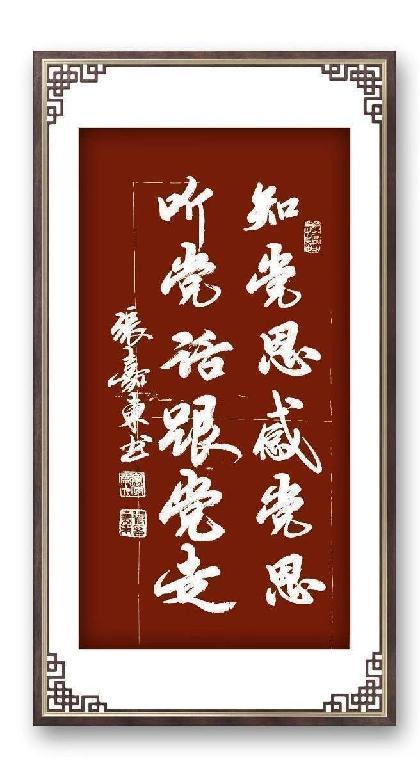 知党恩感党恩
听党话跟党走
張嘉東书